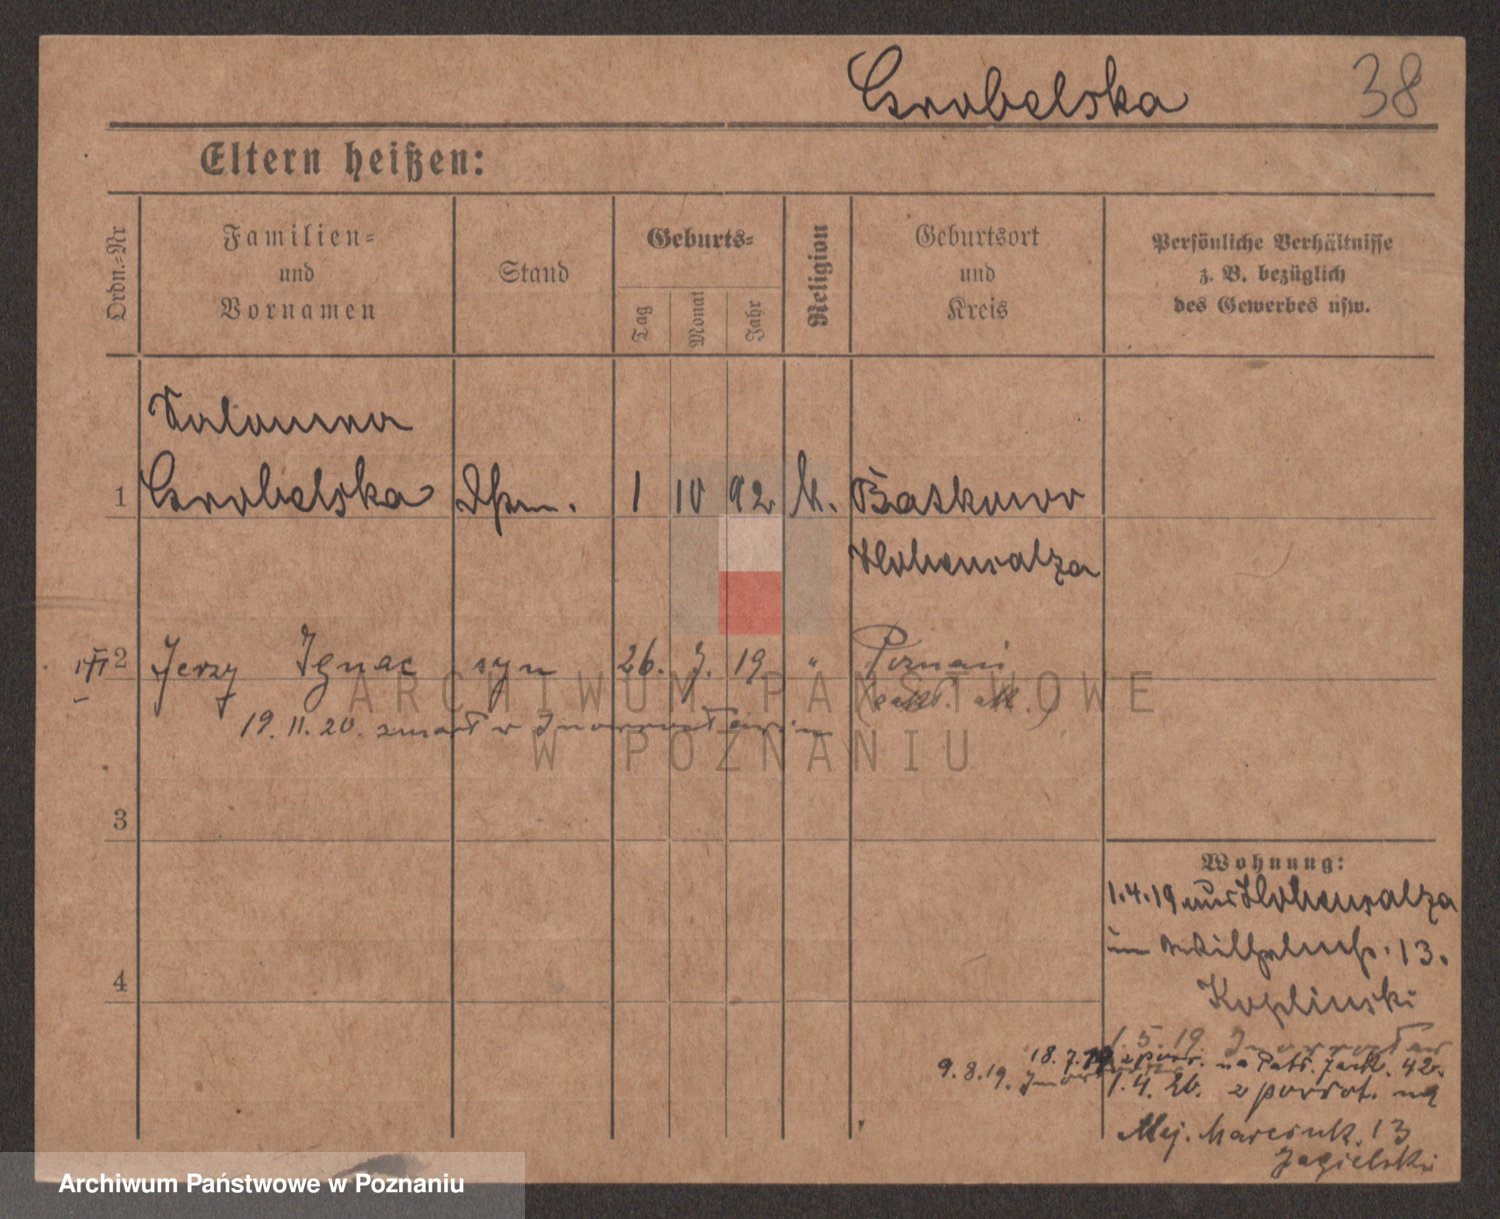 Grobelska 38
Eltern heißen:
Ordn.-Nr
Familien-
und
Vornamen
Stand
Geburts-
Tag
Monat
Jahr
Religion
Geburtsort
und
Kreis
Persönliche Verhältnisse
z. B. bezüglich
des Gewerbes usw.
Salomea
1 Grobelska 1 10 92 k.
Hohensalza
2 Jerzy Ignac syn 26. 7. 19 " Poznań
19. 11. 20. zmarł w Inowrocławiu
3
4
Wohnung:
1.4.19 aus Hohensalza
in Wilhelmstr. 13.
Koplinski
1. 5. 19. Inowrocław
18. 7. 19 z pow. na Patr. Jack. 42.
9. 8. 19. Inowrocław
1. 4. 20. z powrot. na
Alej. Marcink. 13
Jagielski
ARCHIWUM PAŃSTWOWE
W POZNANIU
Archiwum Państwowe w Poznaniu